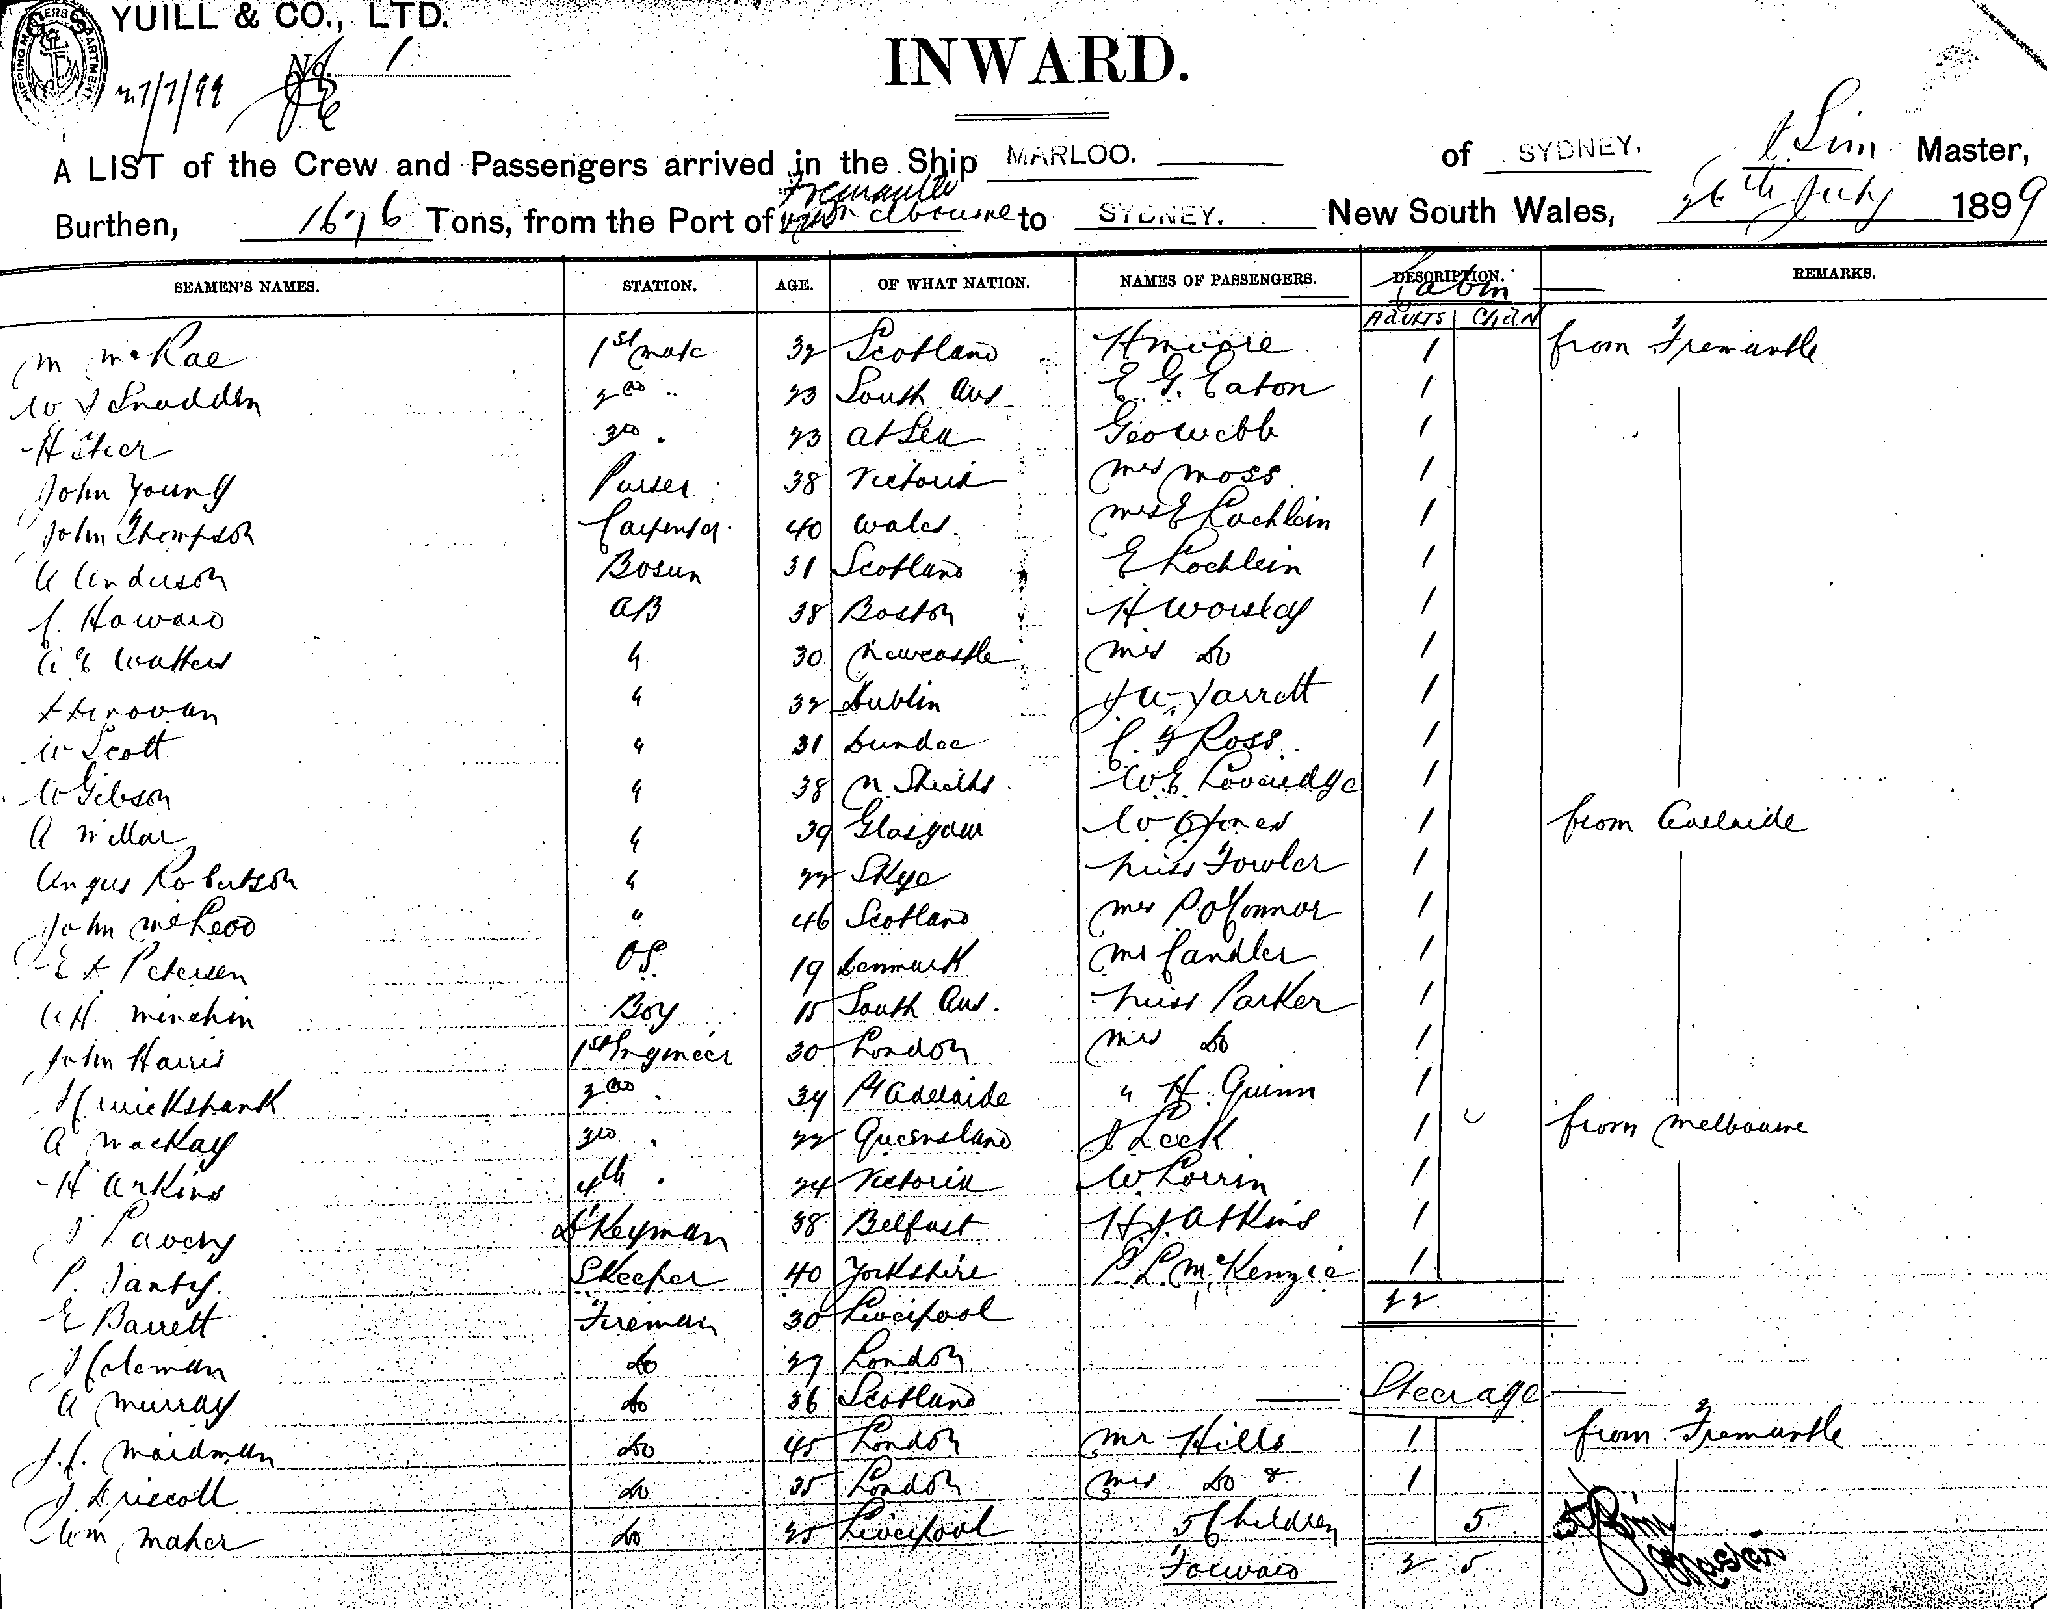 YUILL & CO., LTD.
No. 1
27/7/99
INWARD.
A LIST of the Crew and Passengers arrived in the Ship MARLOO. of SYDNEY. J Sim Master,
Burthen, 1676 Tons, from the Port of Fremantle via Melbourne to SYDNEY. New South Wales, 26th July 1899
SEAMEN'S NAMES. STATION. AGE. OF WHAT NATION. NAMES OF PASSENGERS. DESCRIPTION. REMARKS.
Cabin
Adults Chdn
M McRae 1st mate 32 Scotland H Moore 1 from Fremantle
W J Snadden 2nd " 23 South Aus E. G. Eaton 1
H Steer 3rd " 23 at Sea Geo Webb 1
John Young Purser 38 Victoria Mrs Moss 1
John Thompson Carpenter 40 Wales Mrs E Lochlein 1
A Anderson Bosun 31 Scotland E Lochlein 1
C. Howard AB 38 Boston H Worsley 1
A E Watters " 30 Newcastle Mrs Do 1
D Donovan " 32 Dublin J W Yarrett 1
W Scott " 31 Dundee C. F Ross 1
W Gibson " 38 N. Shields W. E. Loveridge 1
A Millar " 39 Glasgow W Jones 1 from Adelaide
Angus Robertson " 22 Skye Miss Fowler 1
John McLeod " 46 Scotland Mrs P O'Connor 1
E D Petersen OS. 19 Denmark Mr Candler 1
A H. Minchin Boy 15 South Aus. Miss Parker 1
John Harris 1st Engineer 30 London Mrs Do 1
J Cruickshank 2nd " 34 Pt Adelaide " H. Quinn 1
A MacKay 3rd " 22 Queensland J Leek 1 from Melbourne
H Arkins 4th " 24 Victoria W. Lorrin 1
J Lavery D'Keyman 38 Belfast H J. Atkins 1
P. Jantz. SKeeper 40 Yorkshire P. L McKenzie 1
E Barrett Fireman 30 Liverpool 22
J Coleman Do 27 London
A Murray Do 36 Scotland Steerage
J. C. Maidman Do 45 London Mr Hills 1 from Fremantle
J. Driscoll Do 35 London Mrs Do & 1
Wm Maher Do 25 Liverpool 5 Children 5
Forward 2 5
J Sim
Master